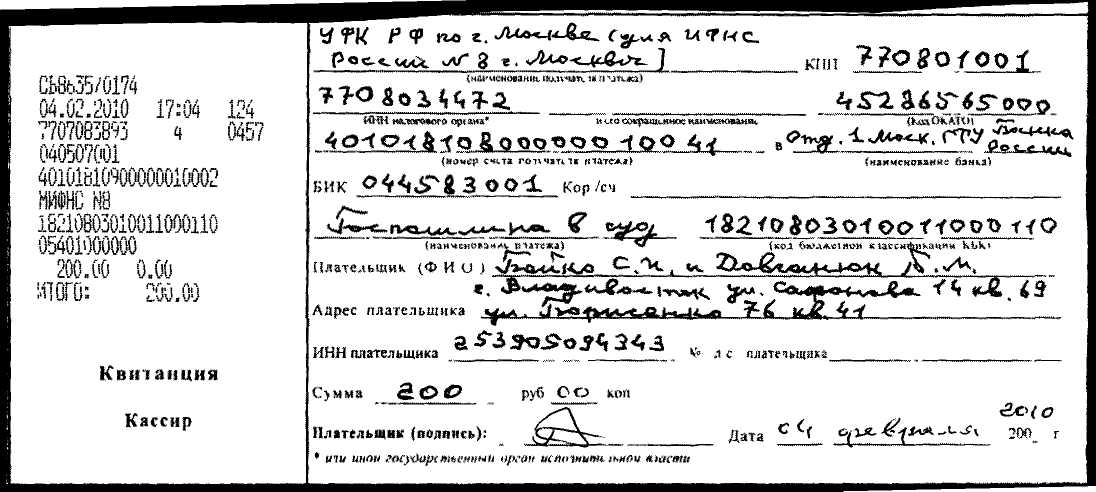 СБ8635/0174
04.02.2010 17:04 124
7707083893 4 0457
040507001
40101810900000010002
МИФНС №8
18210803010011000110
05401000000
200.00 0.00
ИТОГО: 200.00
Квитанция
Кассир
УФК РФ по г. Москве (для ИФНС
России № 8 г. Москвы)
КПП 770801001
(наименование получателя платежа)
7708034472 45286565000
ИНН налогового органа* и его сокращенное наименование (Код ОКАТО)
40101810800000010041 в Отд. 1 Моск. ГТУ Банка
России
(номер счета получателя платежа) (наименование банка)
БИК 044583001 Кор/сч
Госпошлина в суд 18210803010011000110
(наименование платежа) (код бюджетной классификации КБК)
Плательщик (ФИО) Бойко С.И. и Довганюк Л.М.
г. Владивосток ул. Сафонова 14 кв. 69
Адрес плательщика ул. Борисенко 76 кв. 41
ИНН плательщика 253905094343 № л с плательщика
Сумма 200 руб 00 коп
2010
Плательщик (подпись): Дата 04 февраля 200 г
* или иной государственный орган исполнительной власти